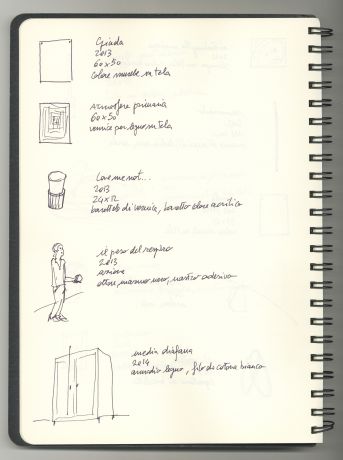 2013
60x50
colore murale su tela
Atmosfera primaria
60x50
vernice per legno su tela
Love me not...
2013
24x12
barattolo di vernice, barattolo colore acrilico
il peso del respiro
2013
azione
ottone, marmo nero, nastro adesivo
media diafana
2014
armadio legno, filo di cotone bianco